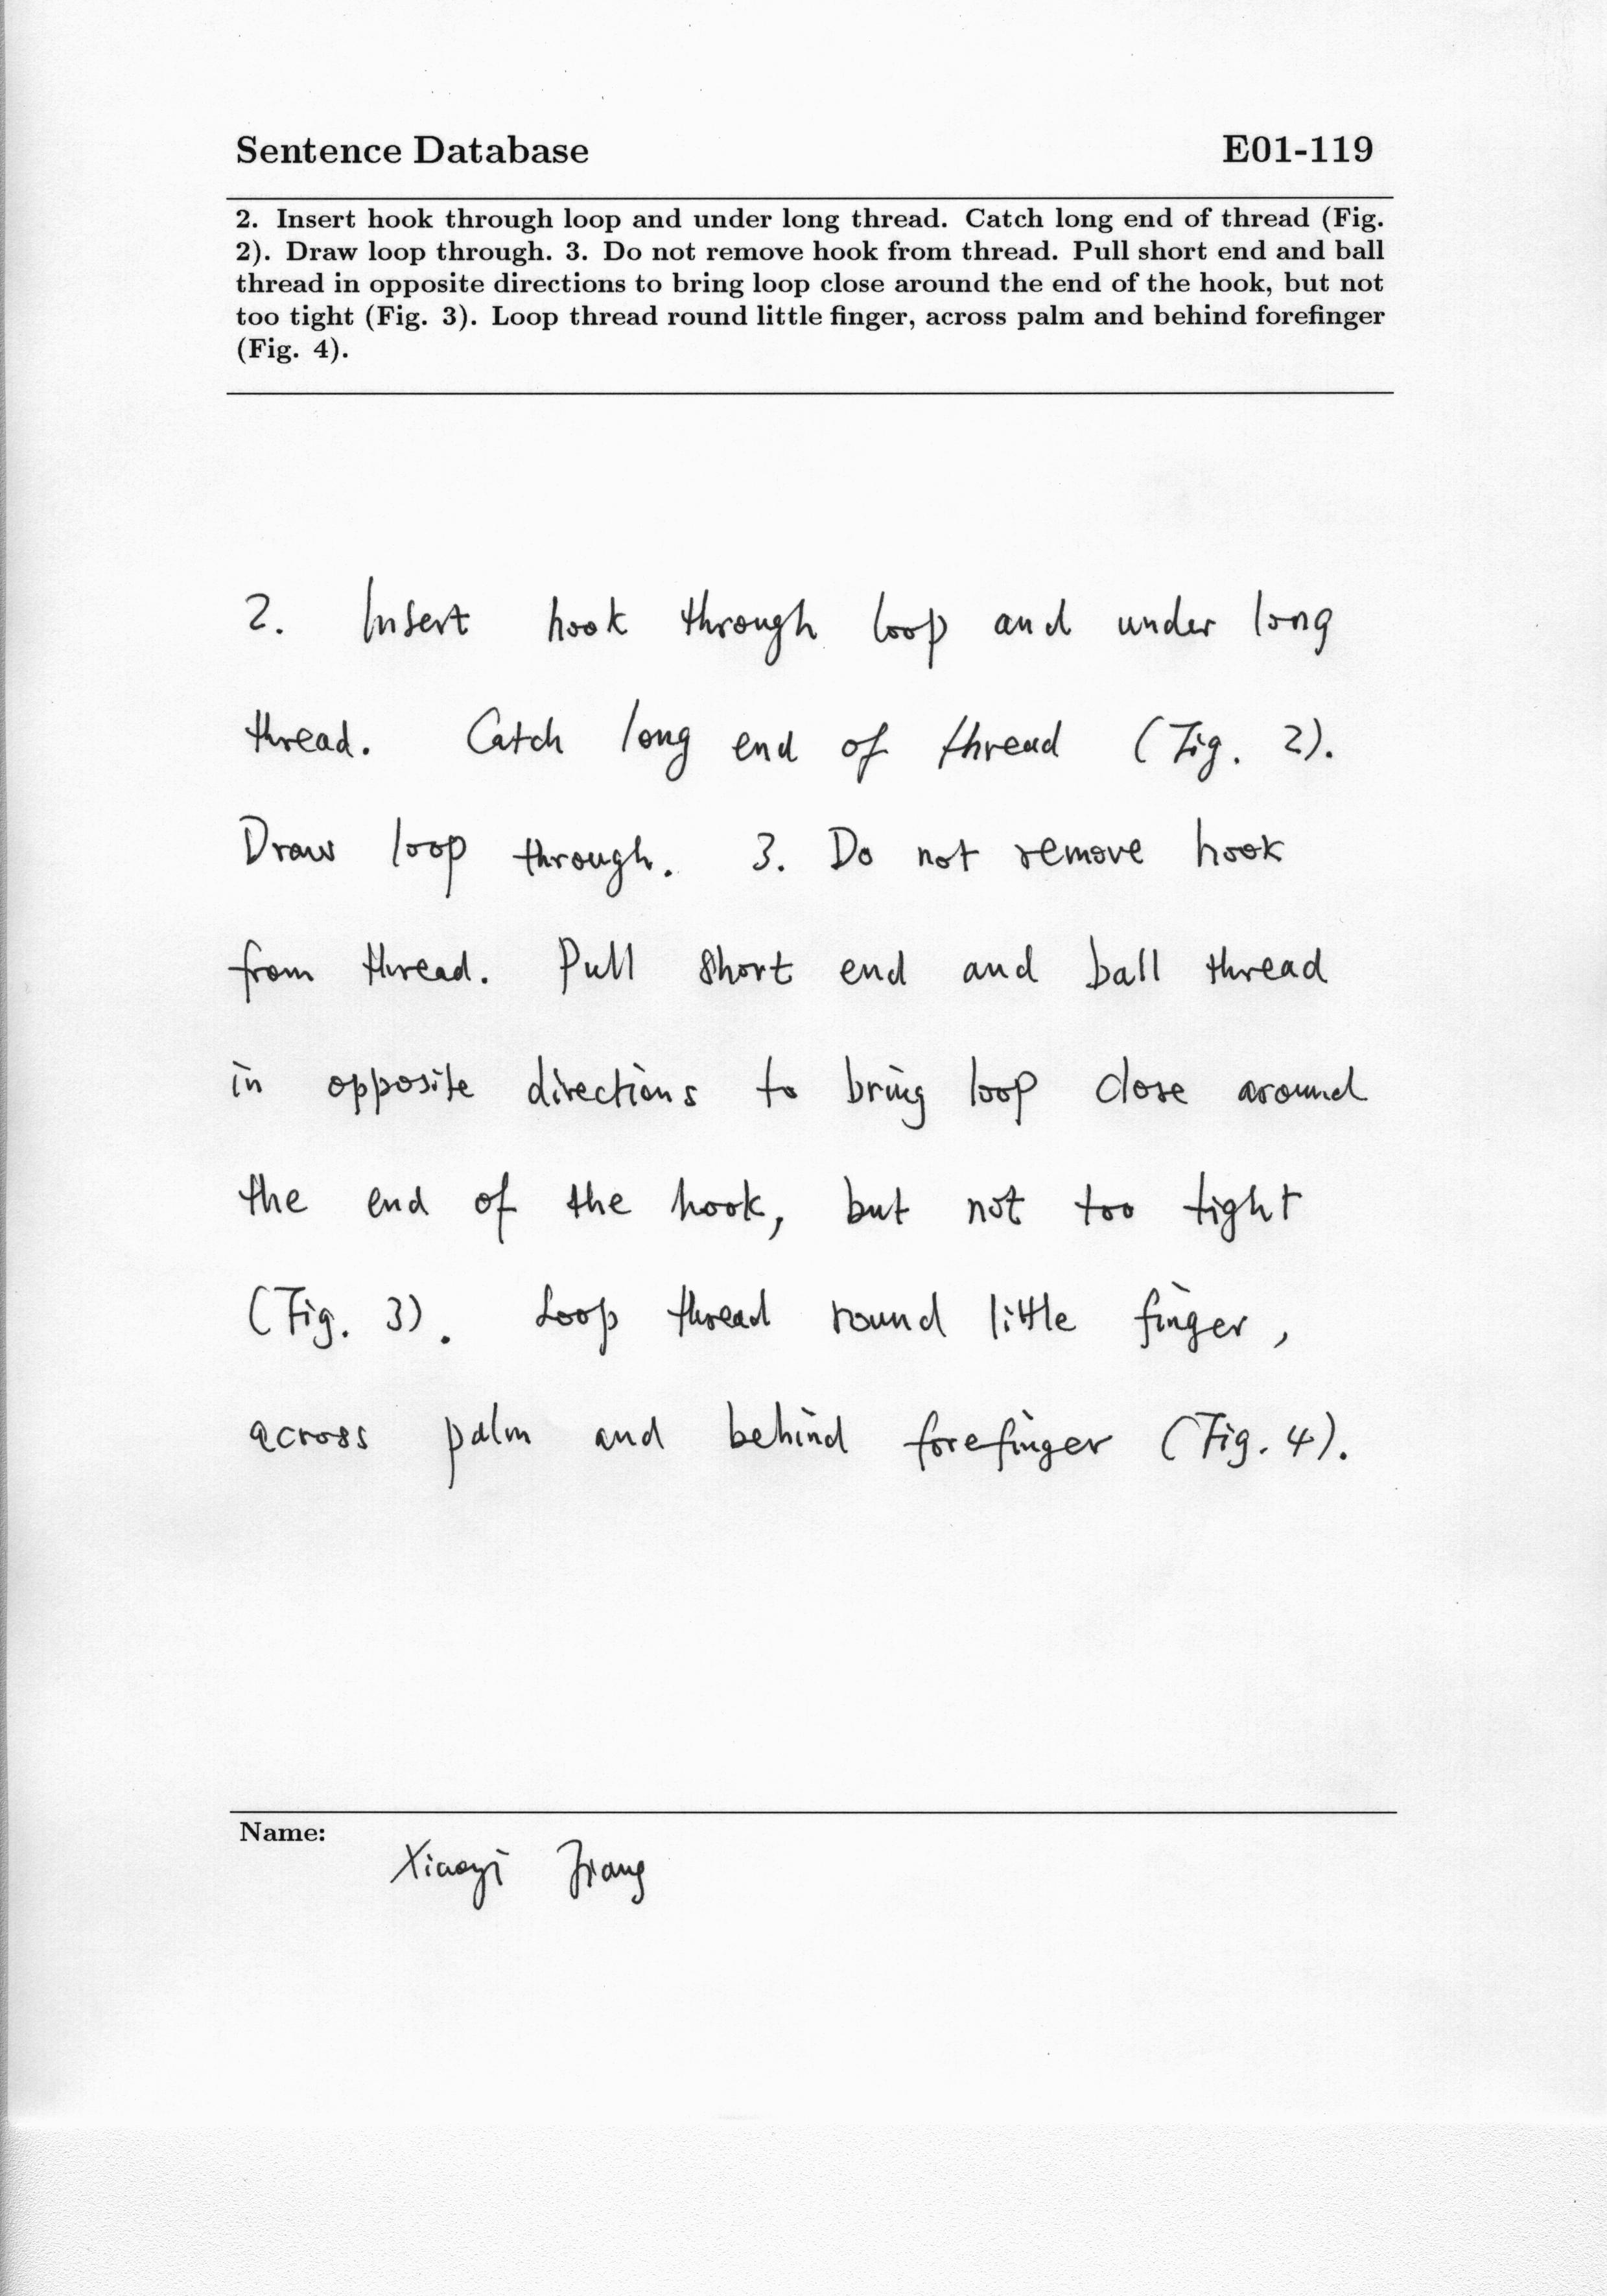 Sentence Database E01-119
2. Insert hook through loop and under long thread. Catch long end of thread (Fig.
2). Draw loop through. 3. Do not remove hook from thread. Pull short end and ball
thread in opposite directions to bring loop close around the end of the hook, but not
too tight (Fig. 3). Loop thread round little finger, across palm and behind forefinger
(Fig. 4).
2. Insert hook through loop and under long
thread. Catch long end of thread (Fig. 2).
Draw loop through. 3. Do not remove hook
from thread. Pull short end and ball thread
in opposite directions to bring loop close around
the end of the hook, but not too tight
(Fig. 3). Loop thread round little finger,
across palm and behind forefinger (Fig. 4).
Name:
Xiaoyi Jiang